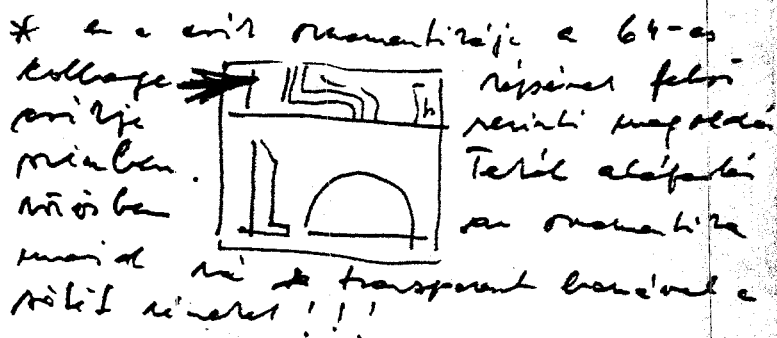 * ez a csík ornamentikája a 64-es
kollage részének felső
csíkja szerinti megoldás
színben. Tehát aláfestés
vörösben az ornamentika
majd rá transparent barnával a
sötét részeket!!!